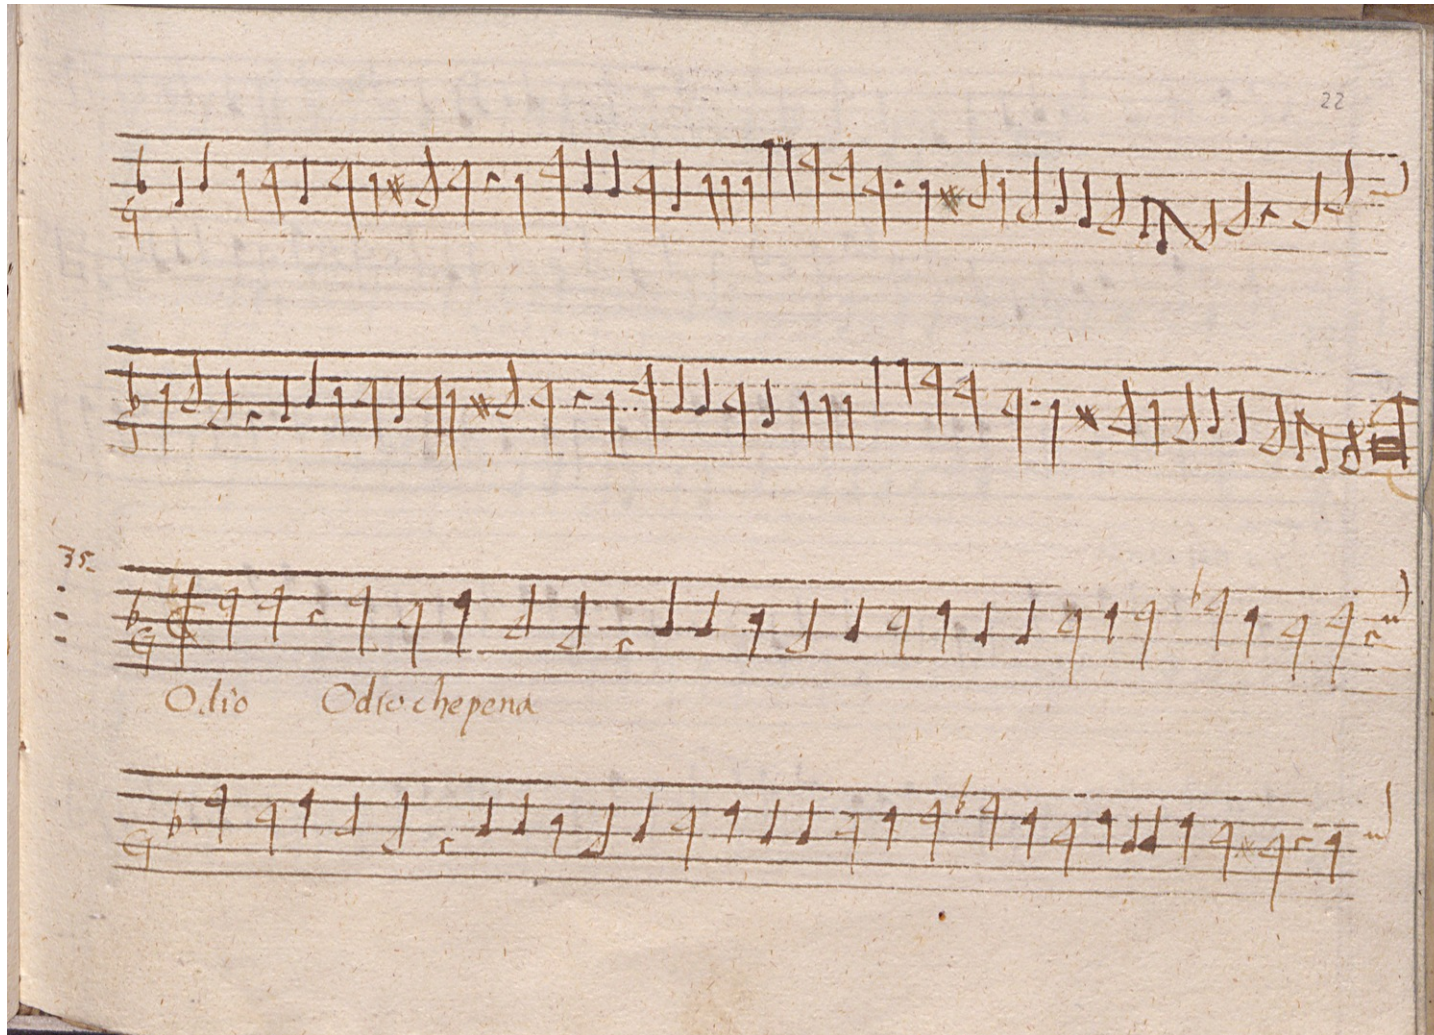 22
35
Odio Odio che pena